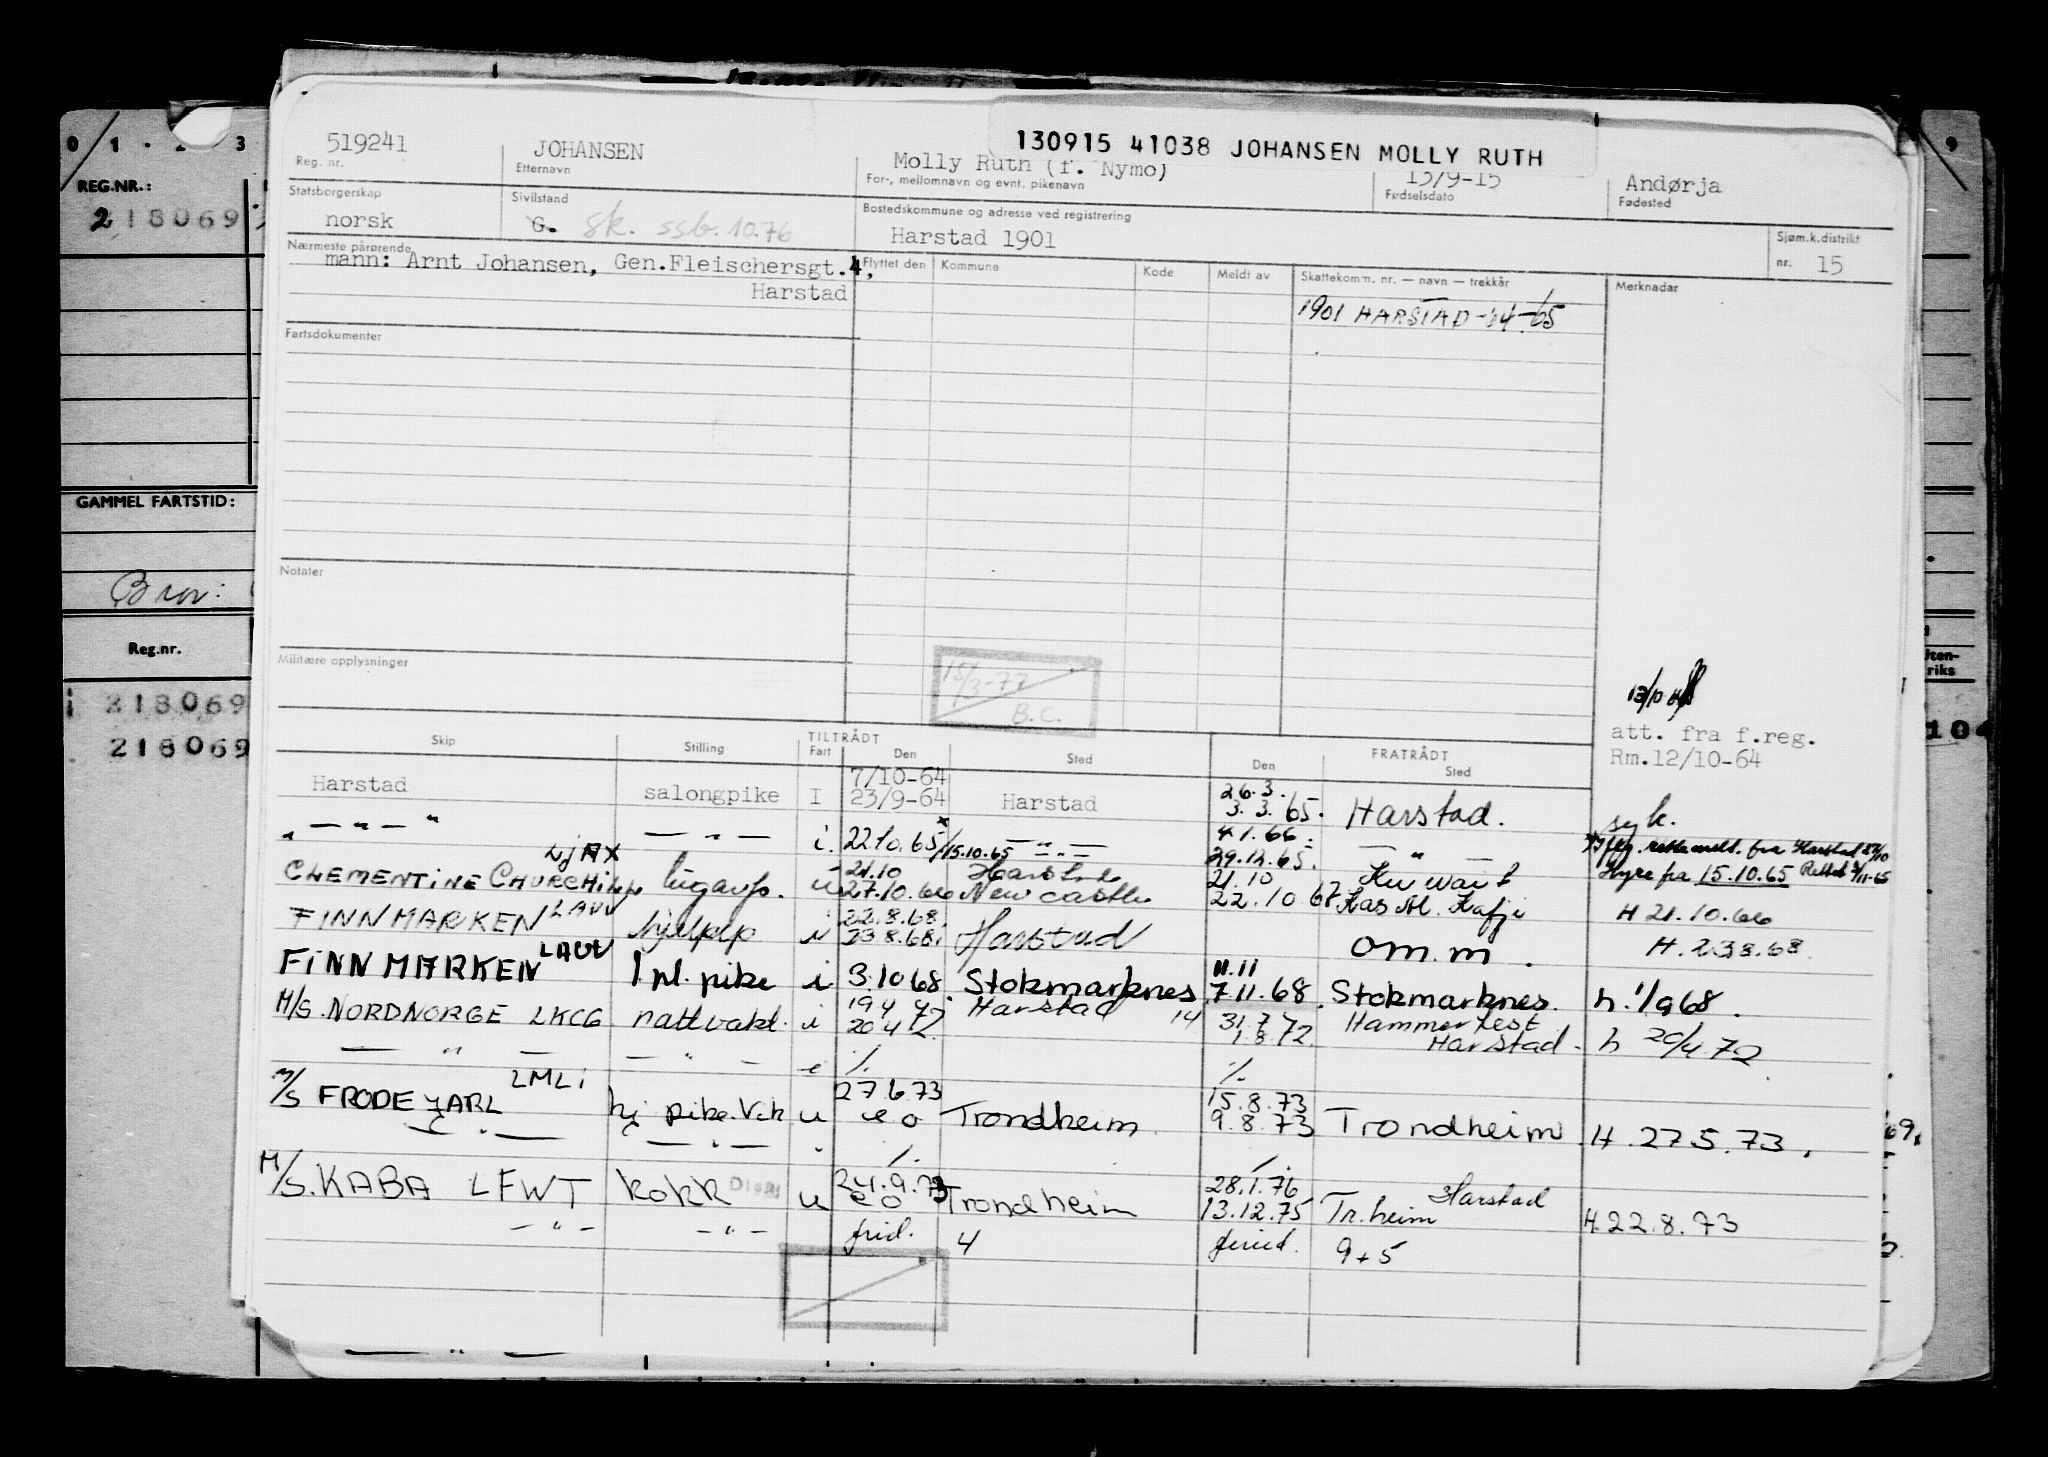 0 1 2 3
REG.NR.:
218069
GAMMEL FARTSTID:
Brev:
Reg.nr.
i 218069
218069
9
riks
104
519241
Reg. nr.
JOHANSEN
Etternavn
130915 41038 JOHANSEN MOLLY RUTH
Molly Ruth (f. Nymo)
For-, mellomnavn og evnt. pikenavn
13/9-15
Fødselsdato
Andørja
Fødested
Statsborgerskap
norsk
Sivilstand
G. sk. ssb. 10.76
Bostedskommune og adresse ved registrering
Harstad 1901
Sjøm.k.distrikt
nr. 15
Nærmeste pårørende
mann: Arnt Johansen, Gen.Fleischersgt.4,
Harstad
Flyttet den Kommune Kode Meldt av Skattekomm. nr. — navn — trekkår Merknader
1901 HARSTAD -04-65
Fartsdokumenter
Notater
Militære opplysninger
15/3-77
B.C.
13/10
att. fra f.reg.
Rm.12/10-64
Skip Stilling TILTRÅDT Fart Den Sted Den FRATRÅDT Sted
7/10-64 26.3.
Harstad salongpike I 23/9-64 Harstad 3.3.65. Harstad. syk.
— " — " — " — i. 22.10.65 * 15.10.65 — " — 4.1.66 29.12.65. — " —
rettemeld. fra Harstad 27/10
Hyre fra 15.10.65
LJAX 21.10 Harstad 21.10 Kuwait
CLEMENTINE CHURCHILL lugarp. u 27.10.66 New castle 22.10 67 Ras Al. Kafji H 21.10.66
LAUV 22.8.68
FINNMARKEN hjelpep i 23 8.68 Harstad om.m. H. 23.8.68
LAUV 11.11
FINNMARKEN 1 pl. pike i 3.10 68 Stokmarknes 7.11.68. Stokmarknes. h. 1/9 68.
19 4 72 Harstad 14 31.7 72 Hammerfest
M/S. NORDNORGE LKCG nattvakt. i 20 4 72. 1.8.72 Harstad. h 20/4 72
— " — — " — i ·/. ·/.
LMLI 27 6 73 15.8.73
M/S FRODE JARL hj pike.Vik u e o Trondheim 9.8.73 Trondheim H. 27 5.73.
— " — — " — " ·/. ·/.
24.9.73 28.1.76 Harstad
M/S. KABA LFWT Kokk u e o Trondheim 13.12.75 Tr.heim H. 22.8.73
— " — — " — frid. 4 feried. 9+5